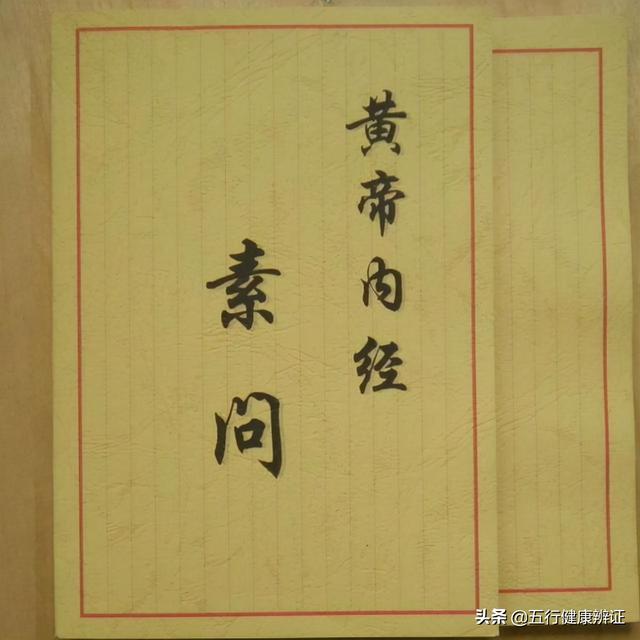 黄帝内经
素问
头条 @五行健康辨证